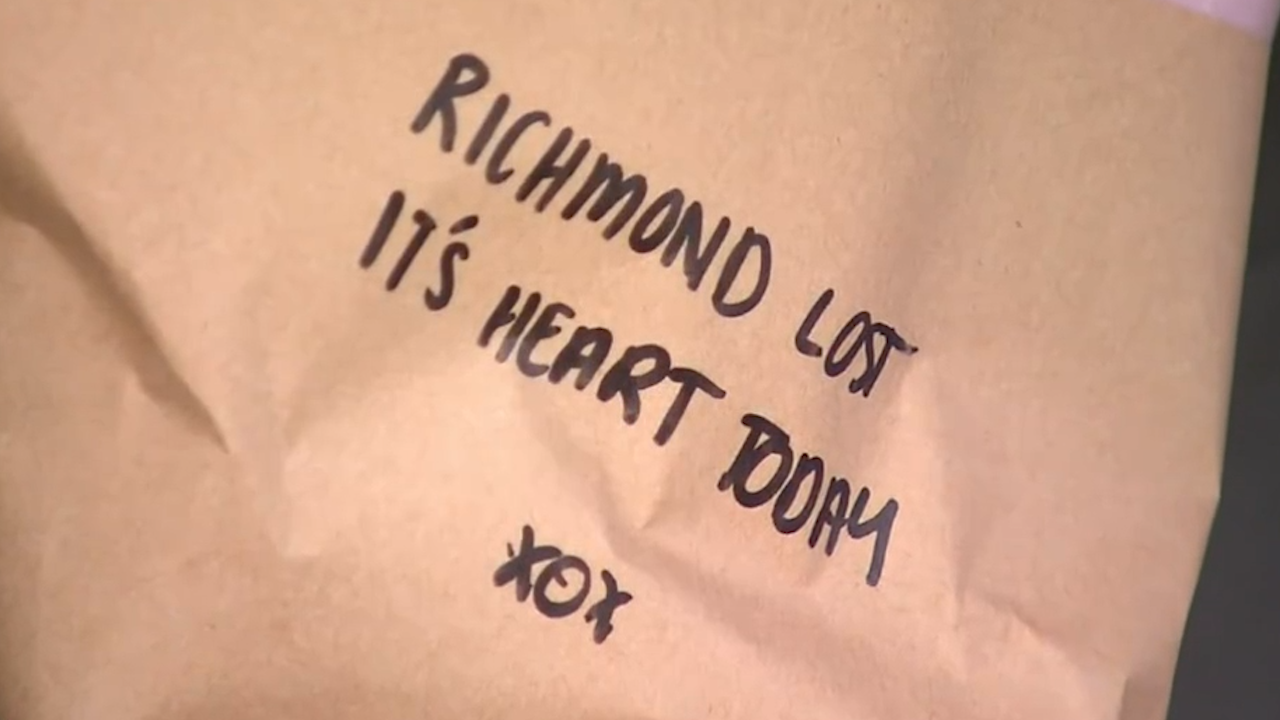 RICHMOND LOST
IT'S HEART TODAY
XOX